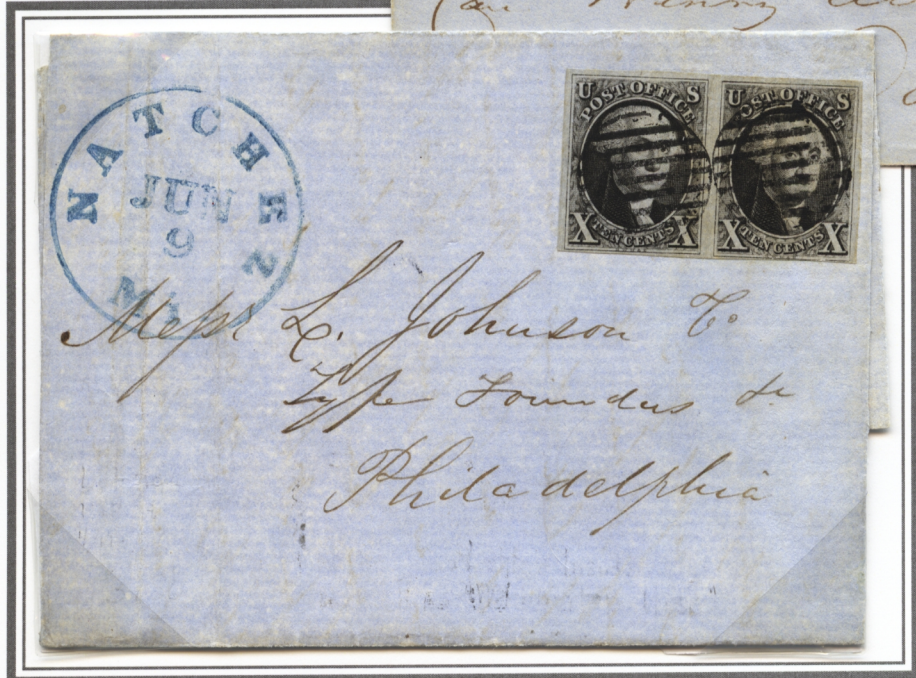 Henry
NATCHEZ
JUN
9
MI
U S
POST OFFICE
X TEN CENTS X
U S
POST OFFICE
X TEN CENTS X
Messrs L. Johnson & Co
Type Founders &c
Philadelphia